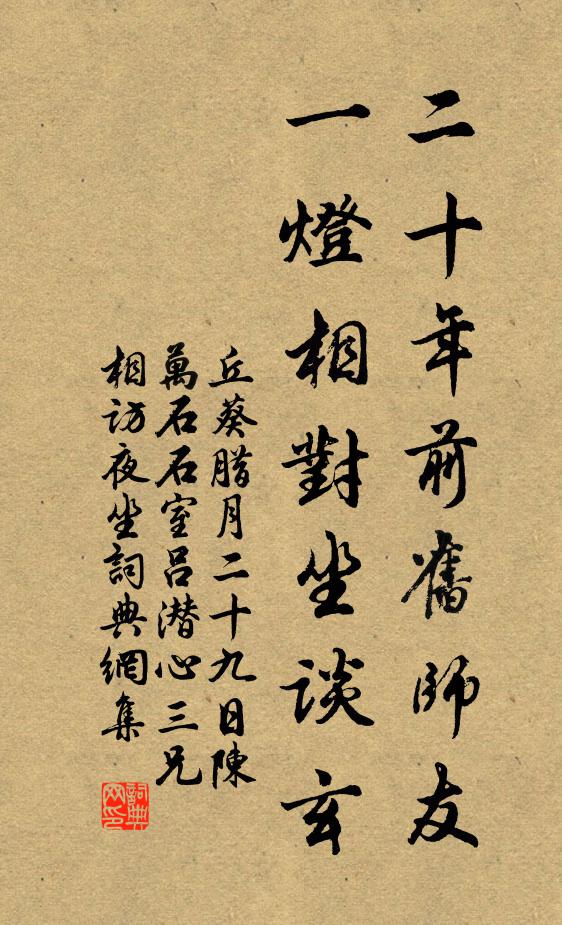 二十年前舊師友
一燈相對坐談玄
丘葵腊月二十九日陳
萬石石室吕潛心三兄
相访夜坐詞典網集
詞典
网印